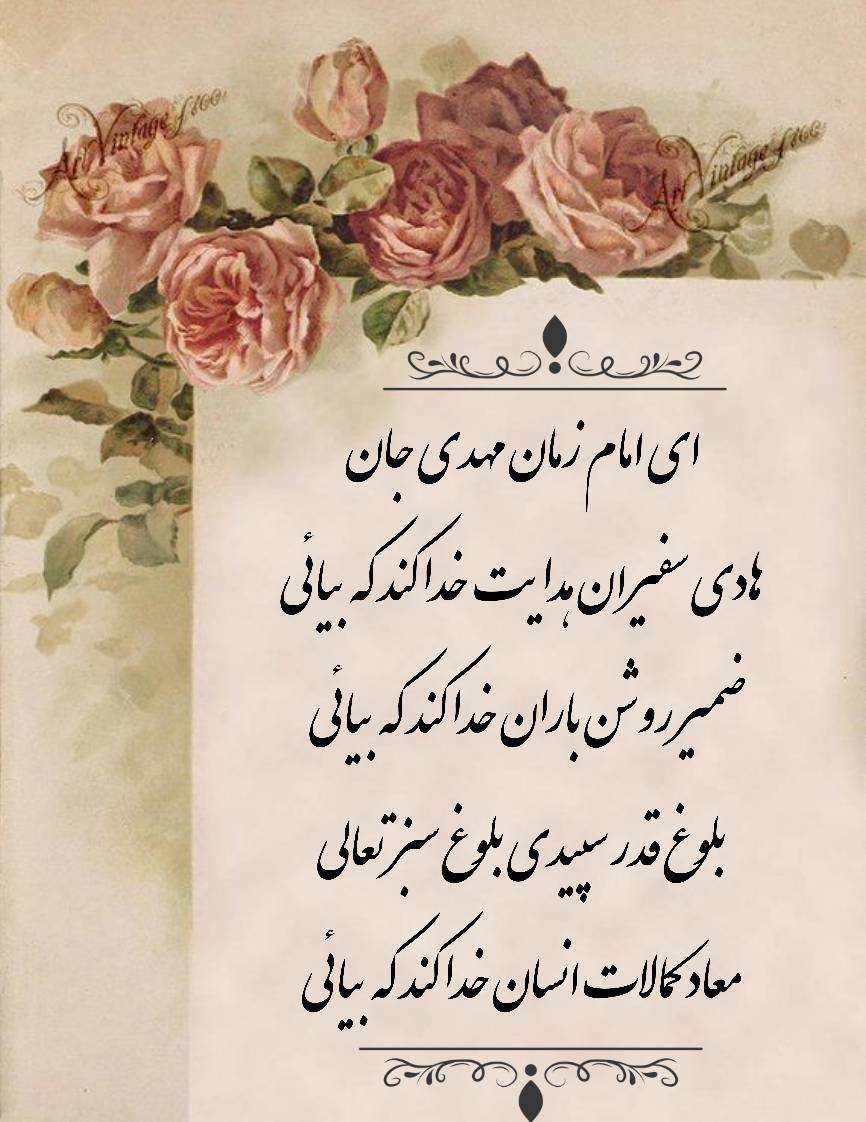 Art Vintage 1800
Art Vintage 1800
ای امام زمان مهدی جان
هادی سفیران هدایت خدا کند که بیائی
ضمیر روشن باران خدا کند که بیائی
بلوغ قدر سپیدی بلوغ سبز تعالی
معاد کمالات انسان خدا کند که بیائی